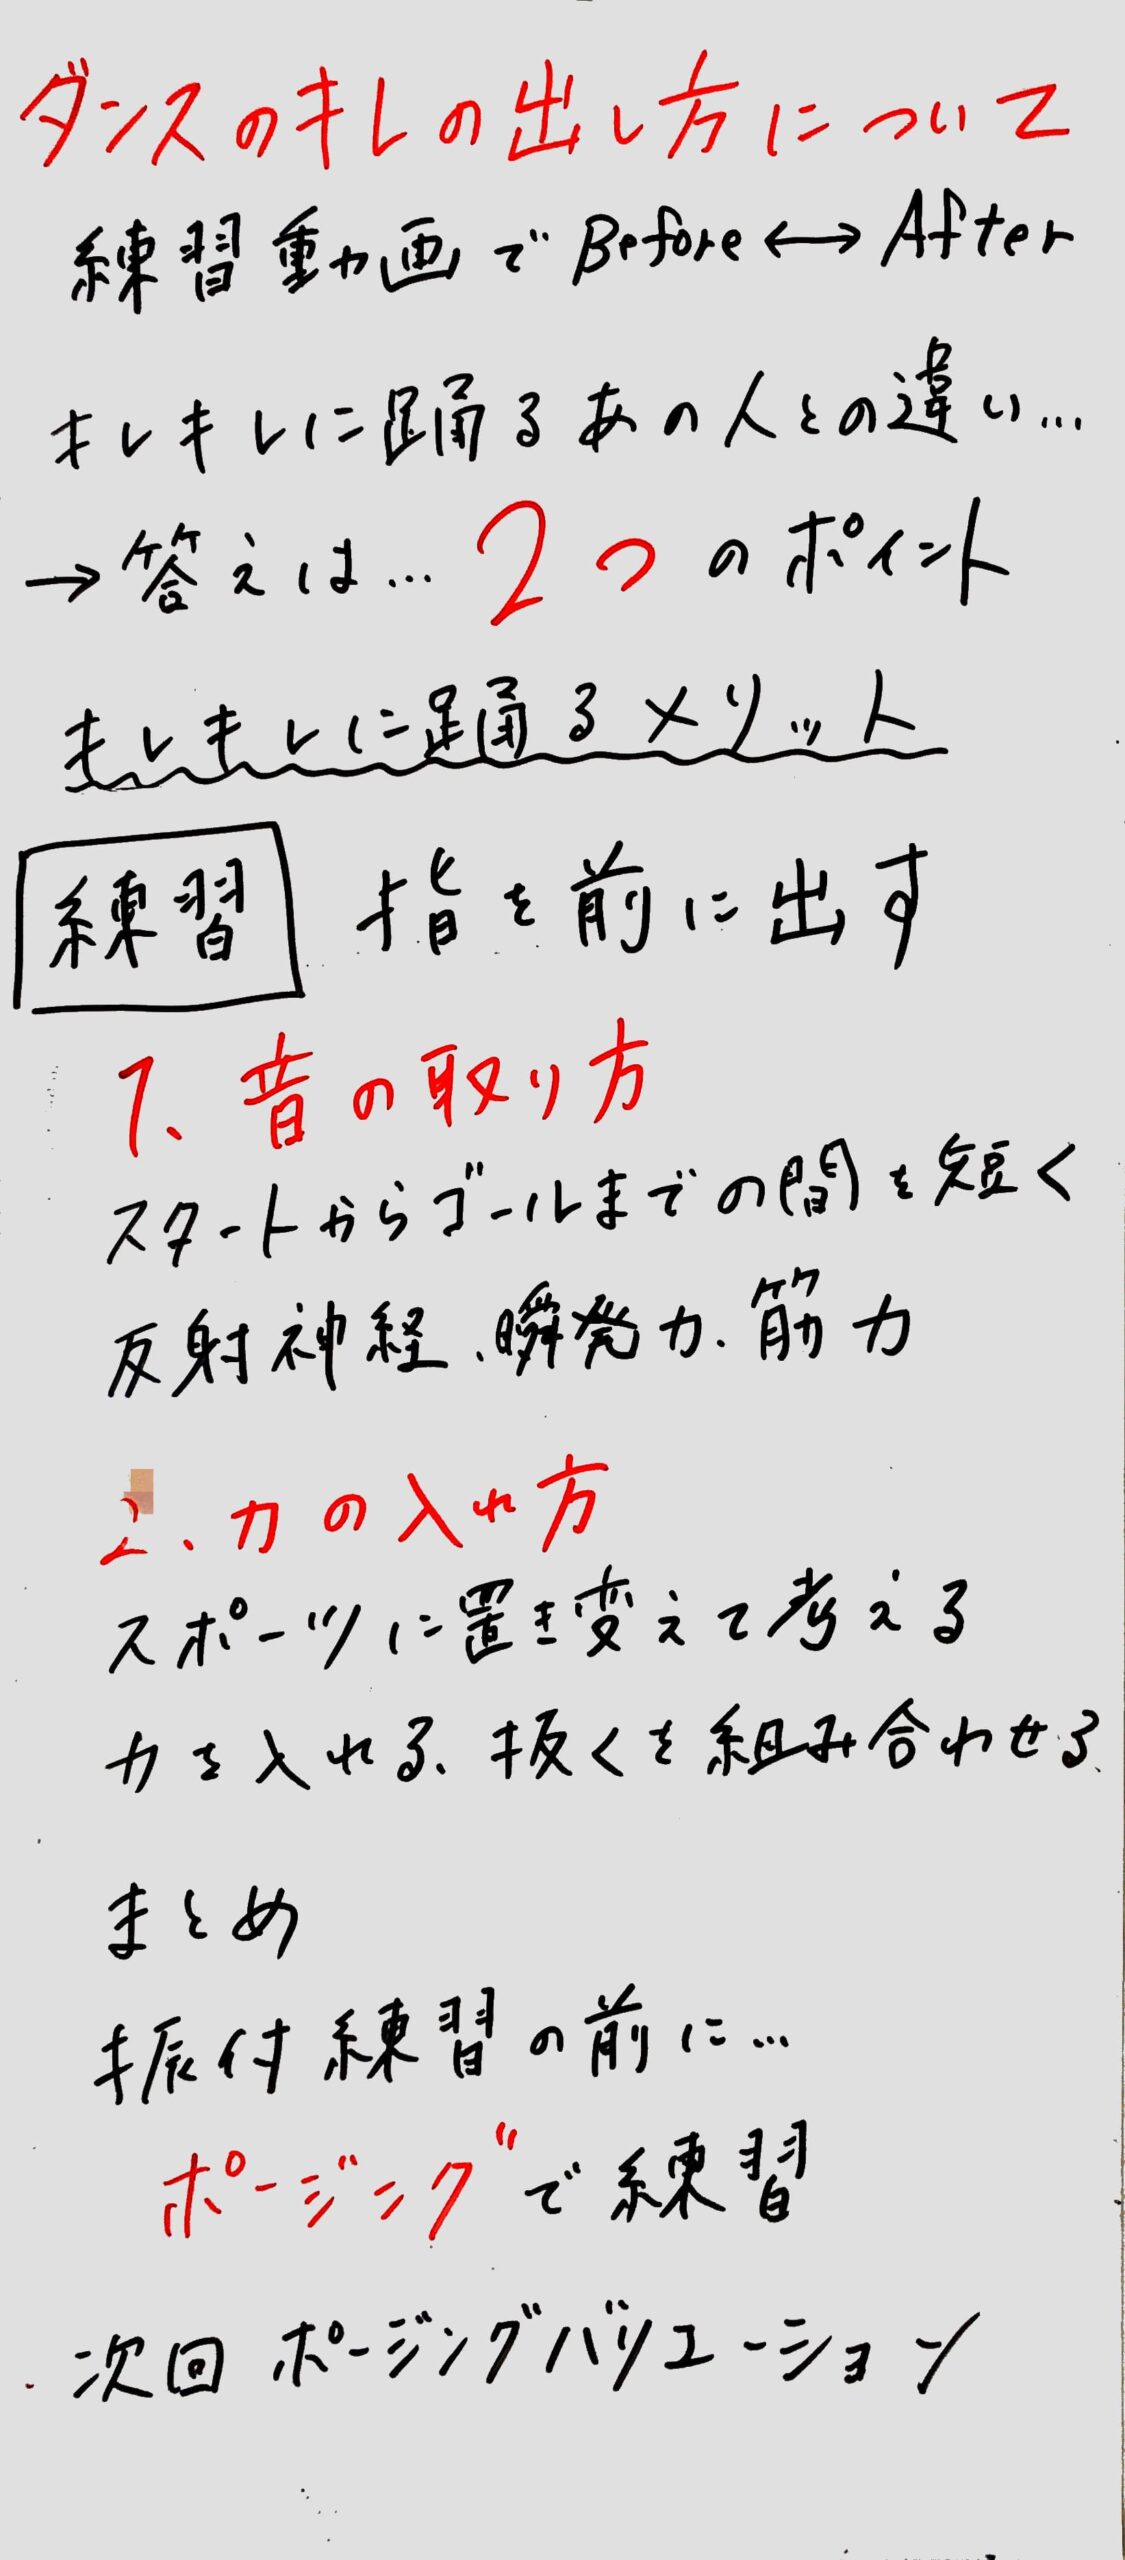 ダンスのキレの出し方について
練習動画でBefore↔After
キレキレに踊るあの人との違い…
→答えは…2つのポイント
キレキレに踊るメリット
練習 指を前に出す
1、音の取り方
スタートからゴールまでの間を短く
反射神経、瞬発力、筋力
2、力の入れ方
スポーツに置き変えて考える
力を入れる、抜くを組み合わせる、
まとめ
振付練習の前に…
ポージングで練習
次回 ポージングバリエーション